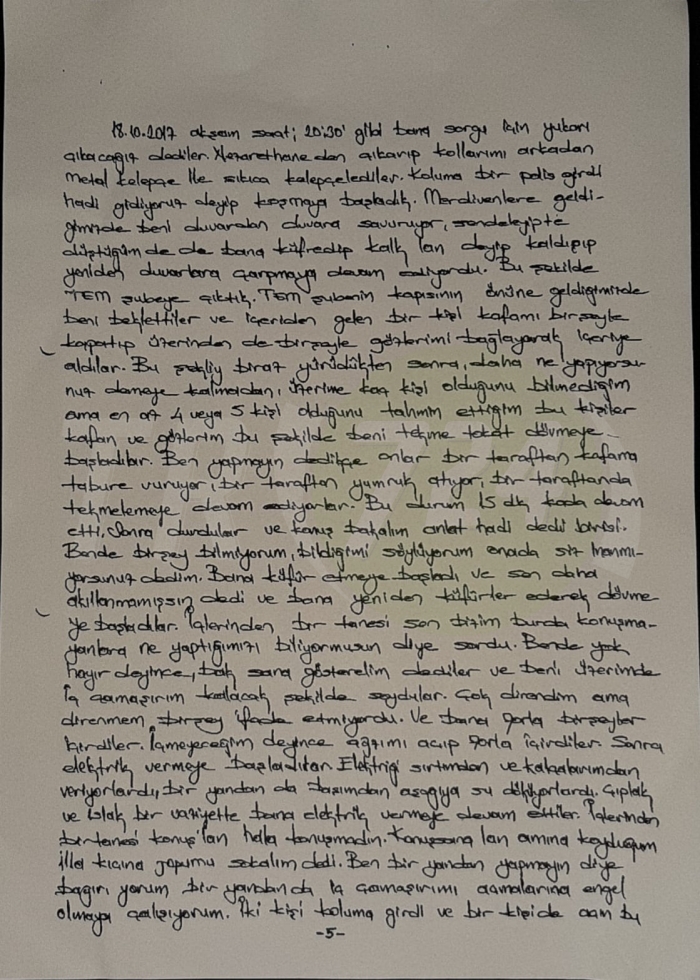 18.10.2017 akşam saati; 20:30' gibi bana sorgu için yukarı
çıkacağız dediler. Nezarethaneden çıkarıp kollarımı arkadan
metal kelepçe ile sıkıca kelepçelediler. Koluma bir polis girdi
hadi gidiyoruz deyip koşmaya başladık. Merdivenlere geldi-
ğimizde beni duvardan duvara savuruyor, sendeleyipte
düştüğümde de bana küfredip kalk lan deyip kaldırıp
yeniden duvarlara çarpmaya devam ediyordu. Bu şekilde
TEM şubeye çıktık. TEM şubenin kapısının önüne geldiğimizde
beni beklettiler ve içeriden gelen bir kişi kafamı birşeyle
kapatıp üzerinden de birşeyle gözlerimi bağlayarak içeriye
aldılar. Bu şekliy biraz yürüdükten sonra, daha ne yapıyorsu-
nuz demeye kalmadan, üzerime kaç kişi olduğunu bilmediğim
ama en az 4 veya 5 kişi olduğunu tahmin ettiğim bu kişiler
kafam ve gözlerim bu şekilde beni tekme tokat dövmeye
başladılar. Ben yapmayın dedikçe onlar bir taraftan kafama
tabure vuruyor, bir taraftan yumruk atıyor, bir taraftanda
tekmelemeye devam ediyorlar. Bu durum 15 dk kada devam
etti. Sonra durdular ve konuş bakalım anlat hadi dedi birisi.
Bende birşey bilmiyorum, bildiğimi söylüyorum onada siz inanmı-
yorsunuz dedim. Bana küfür etmeye başladı ve sen daha
akıllanmamışsın dedi ve bana yeniden küfürler ederek dövme-
ye başladılar. İçlerinden bir tanesi sen bizim burda konuşma-
yanlara ne yaptığımızı biliyormusun diye sordu. Bende yok
hayır deyince, bak sana gösterelim dediler ve beni üzerimde
iç çamaşırım kalacak şekilde soydular. Çok direndim ama
direnmem birşey ifade etmiyordu. Ve bana zorla birşeyler
İçmeyeceğim deyince ağzımı açıp zorla içirdiler. Sonra
elektrik vermeye başladılar. Elektriği sırtımdan ve kalçalarımdan
veriyorlardı, bir yandan da başımdan aşağıya su döküyorlardı. Çıplak
ve ıslak bir vaziyette bana elektrik vermeye devam ettiler. İçlerinden
birtanesi konuş lan hala konuşmadın. Konuşsana lan amına koyduğum
illa kıçına jopumu sokalım dedi. Ben bir yandan yapmayın diye
bağırıyorum bir yandanda iç çamaşırımı açmalarına engel
olmaya çalışıyorum. İki kişi koluma girdi ve bir kişide
-5-